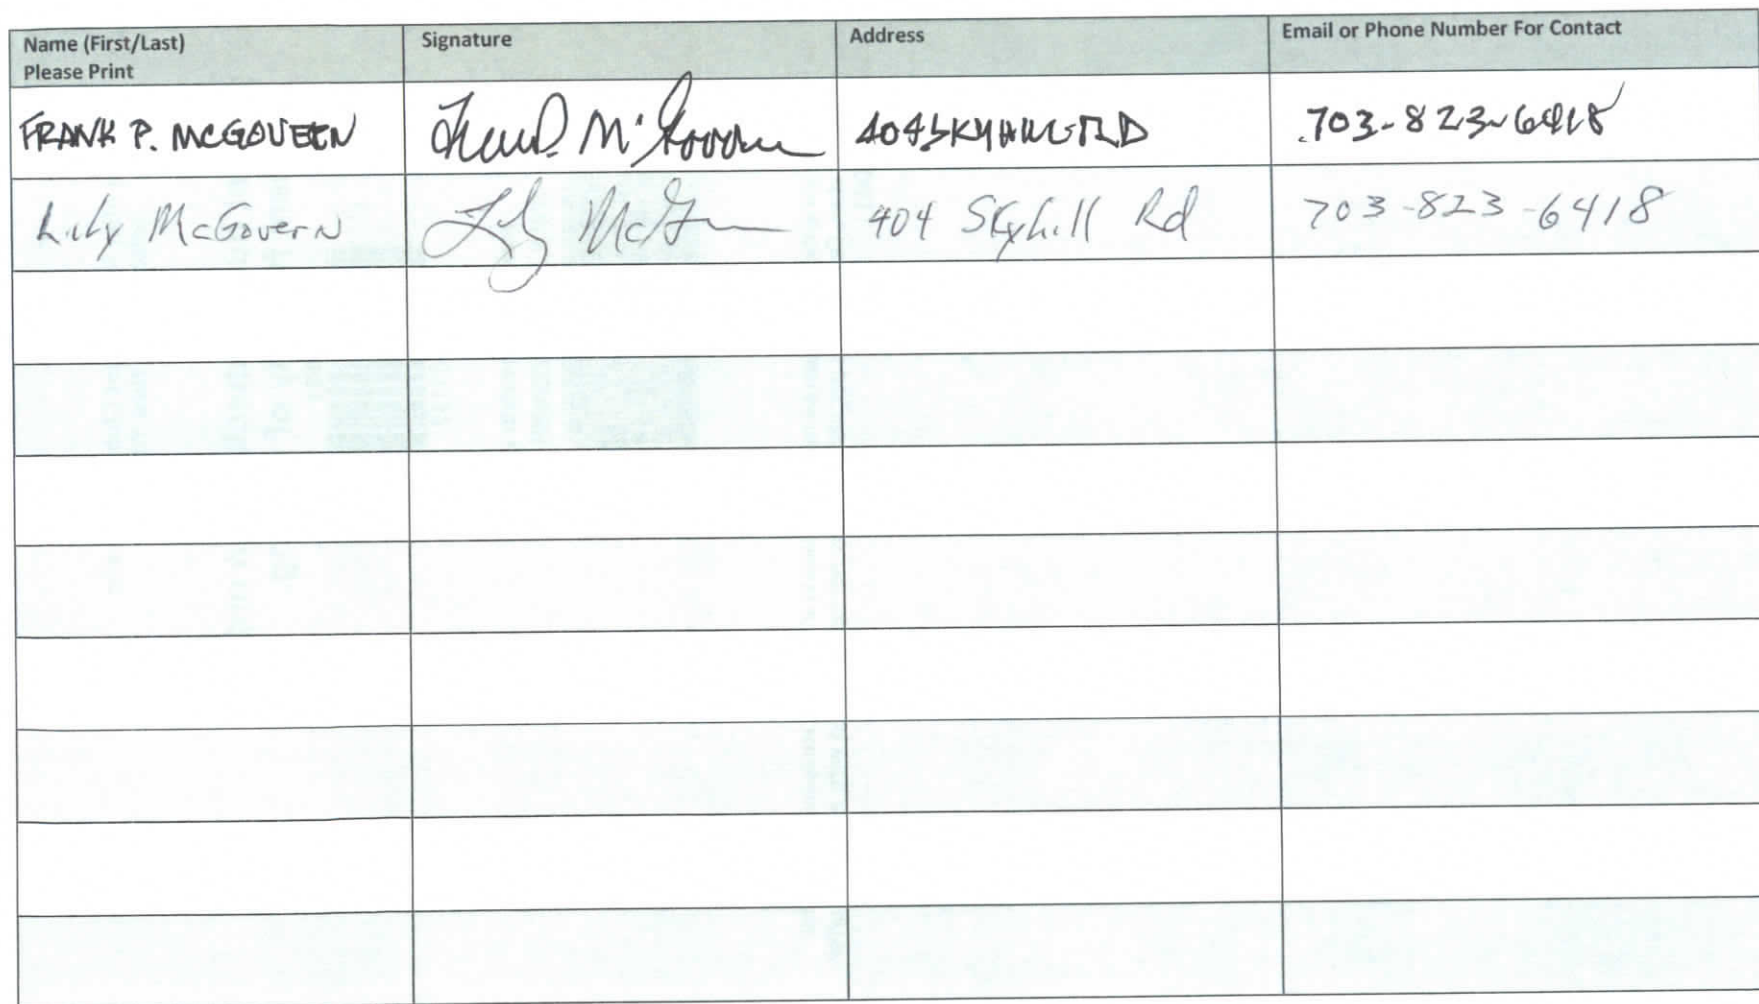 Name (First/Last) Signature Address Email or Phone Number For Contact
Please Print
FRANK P. MCGOVERN Frank P. McGovern 404 SKYHILL RD 703-823-6418
Lily McGovern Lily McG 404 Skyhill Rd 703-823-6418